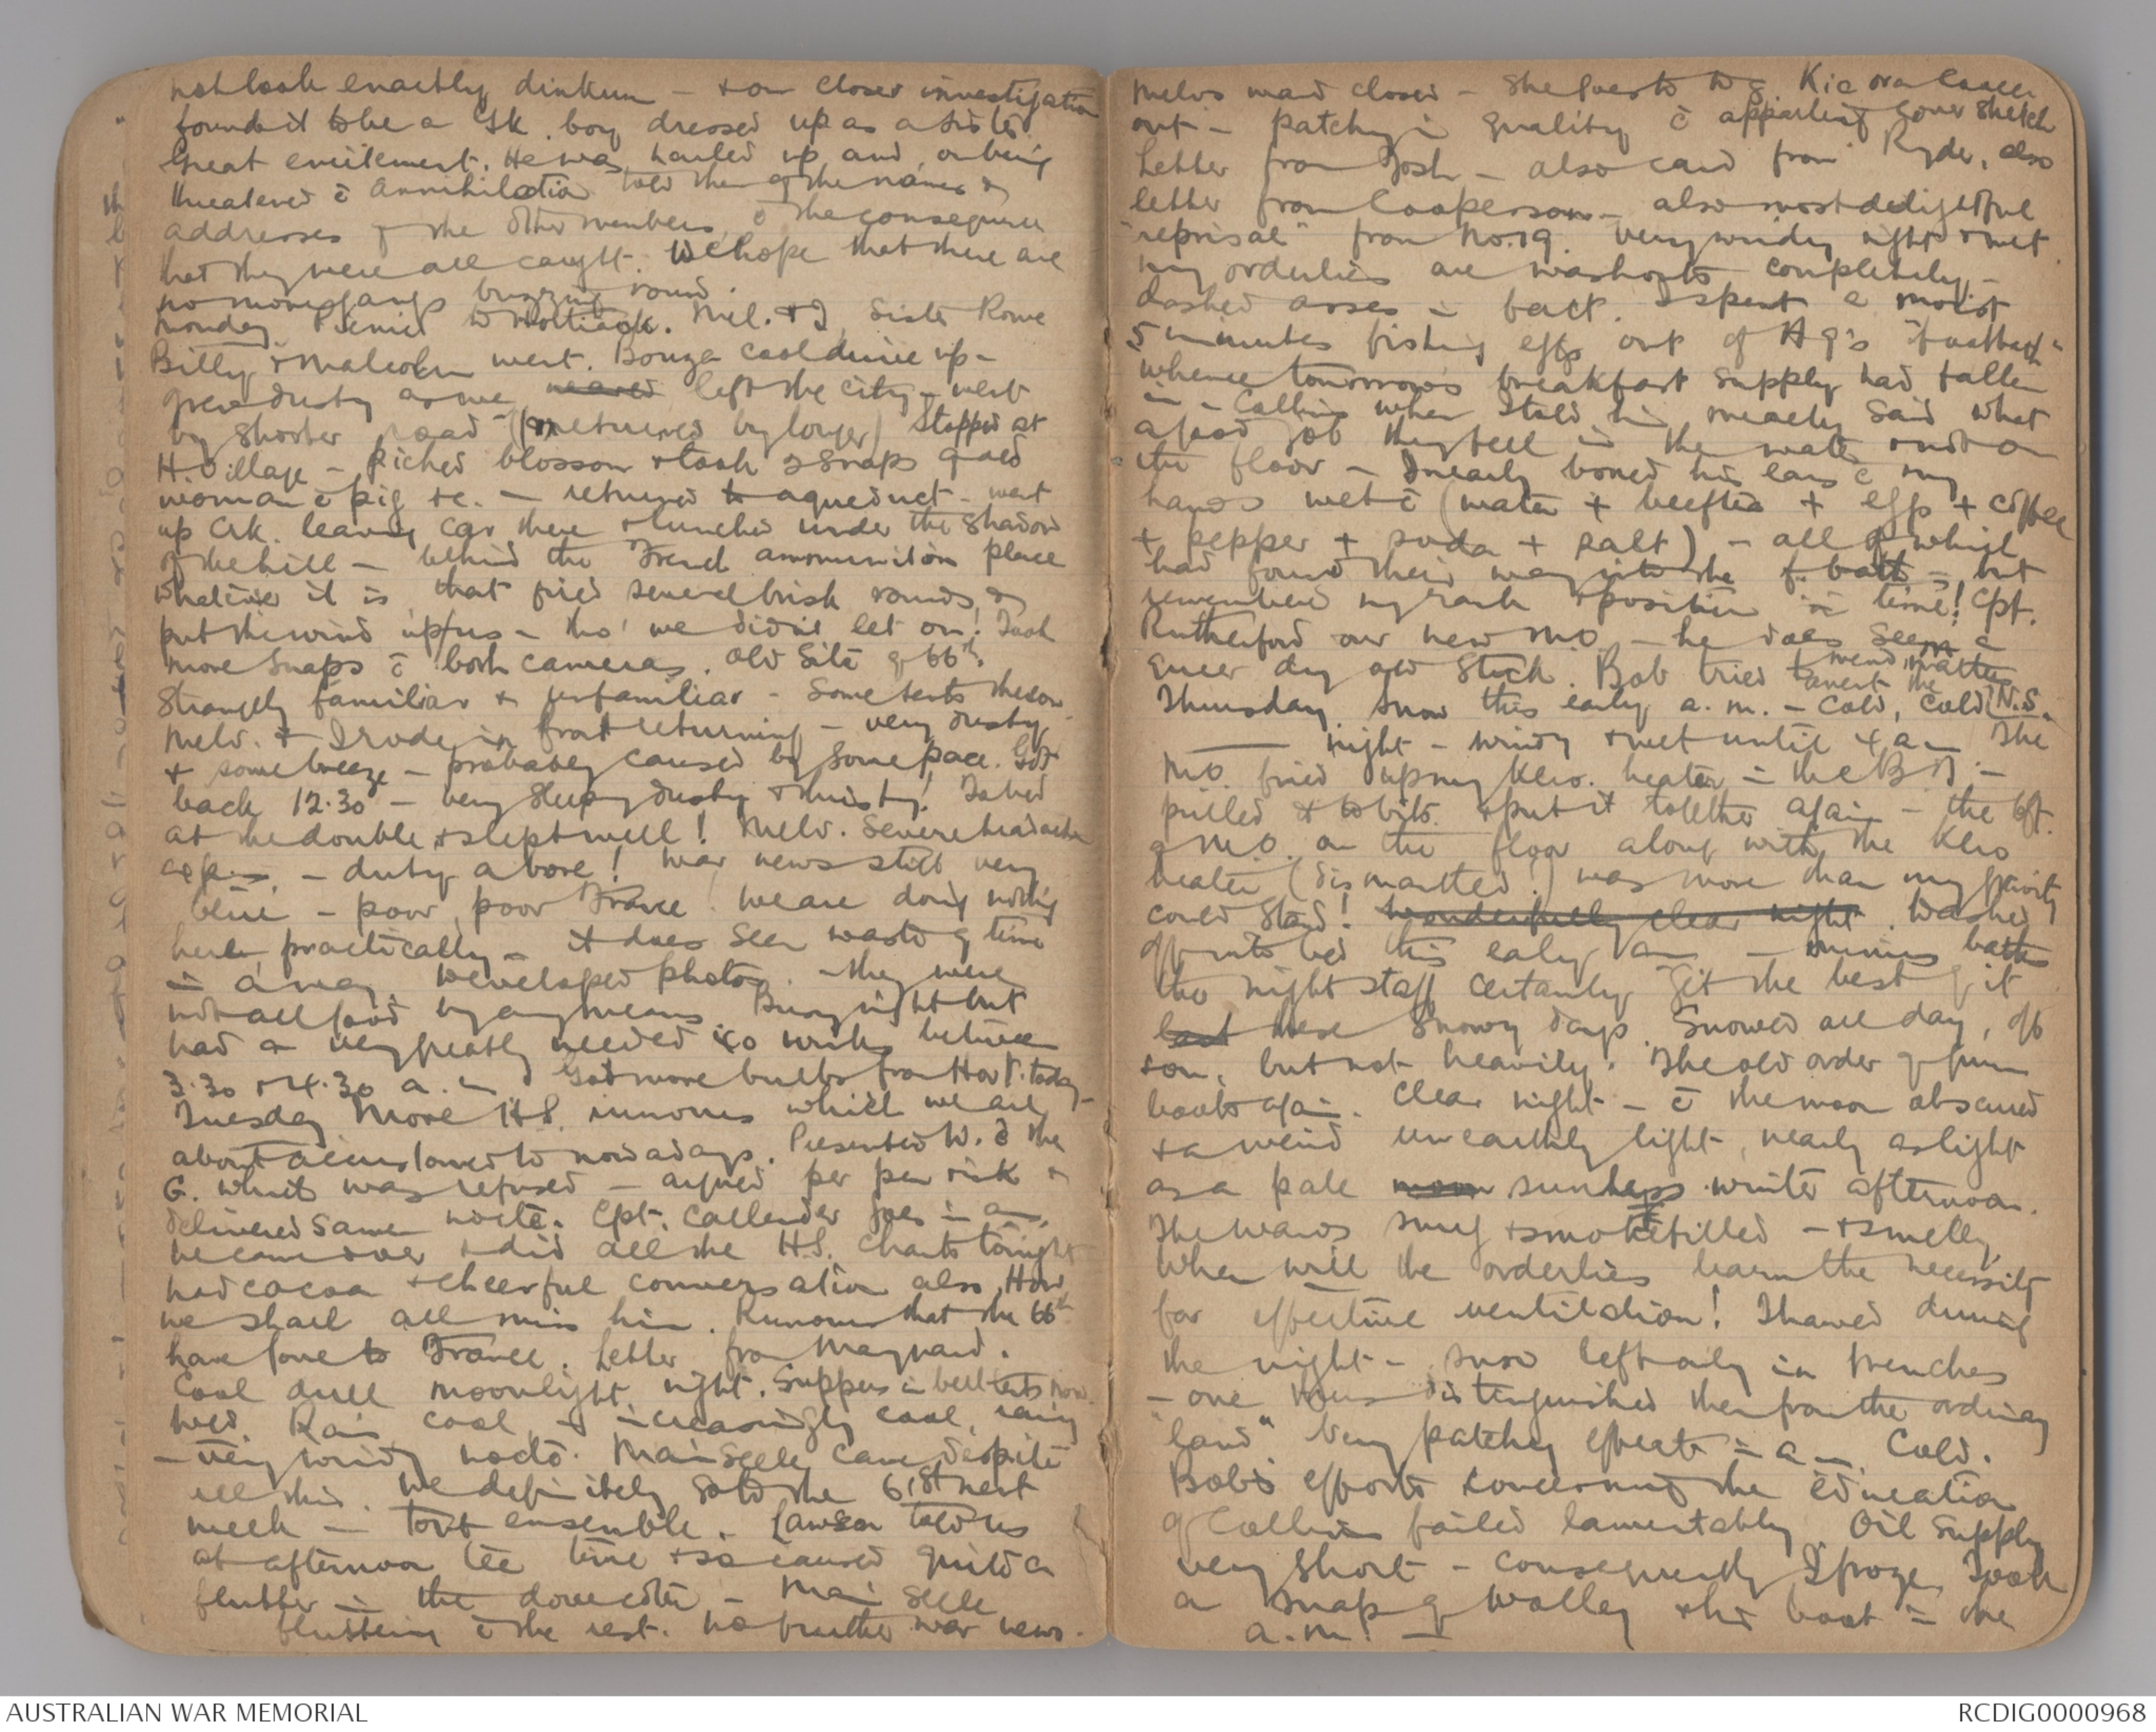 not look exactly dinkum – & on closer investigation
found it to be a Gk. boy dressed up as a sister.
Great excitement. He was hauled up and, on being
threatened c̄ annihilation told them of the names &
addresses of the other members, c̄ the consequence
that they were all caught. We hope that there are
no more gangs buzzing round.
Monday Picnic to Hortiack. Mel. & I, Sister Rowe
Billy & Malcolm went. Bonza cool drive up –
grew dusty as we left the city – went
by shorter road (& returned by longer) Stopped at
H. Village – Picked blossom & took 2 snaps of old
woman c̄ pig &c. – returned to aqueduct – went
up Ck. leaving car there & lunched under the shadow
of the hill – behind the French ammunition place
whatever it is, that fired several brisk rounds, &
put the wind up us – tho' we didn't let on! Took
more snaps c̄ both cameras. Old site of 66th.
Strangely familiar & unfamiliar – Some tents there now
Melv. & I rode in front returning – very dusty
& some breeze – probably caused by some pace. Got
back 12.30 – very sleepy dusty & thirsty! To bed
at the double & slept well! Melv. severe headache
again – duty above! War news still very
blue – poor, poor France! We are doing nothing
here practically – it does seem waste of time
in a way. Developed photos. – they were
not all good by any means. Busy night but
had a very greatly needed between
3.30 & 4.30 a.m. Got more bulbs from today –
Tuesday More H.S. rumours which we are
about accustomed to nowadays. Presented W. c̄ the
G. which was refused – argued per pen &
delivered same note. Cpt. Callender goes in a.m.
he came over & did all the H.S. charts tonight
had cocoa & cheerful conversation also. How
we shall all miss him. Rumour that the 66th
have gone to France. Letter from Maynard.
Cool dull moonlight night. Suppers in bell tents now.
Wed. Rain, cool, & increasingly cool, rainy
– very windy nocto. Main Seele came despite
all this. We definitely go to the 61st next
week – tout ensemble. Lawson told us
at afternoon tea time & so caused quite a
flutter in the dovecote – Main Seele
flustering c̄ the rest. No further war news.
Melv's ward closed – She goes to Kia ora Cooee
out – patchy in quality c̄ appalling cover sketch
Letter from Josh – also card from Ryder, also
letter from Cooperson – also most delightful
"reprisal" from No. 19. Very windy night & wet
my orderlies are washouts completely –
dashed asses in fact. I spent a moist
5 minutes fishing eggs out of "footbath"
whence tomorrow's breakfast supply had fallen
in – Collins when I told him, merely said what
a good job they fell in the water & not on
the floor – I nearly boxed his ears c̄ my
hands wet c̄ (water + beeftea + egg + coffee
+ pepper + soda + salt) – all of which
had found their way into the f. bath – but
remembered my rank & position in time! Cpt.
Rutherford our new M.O. – he does seem a
queer dry old stick. Bob tried to mend matters
Thursday. Snow this early a.m. – Cold, cold (N.S.
– night – windy & wet until 4 a.m. The
M.O. fixed up my Kero. heater in the B.D. –
pulled it to bits & put it together again – the 6ft.
of M.O. on the floor along with the Kero
heater (dismantled!) was more than my gravity
could stand! Wonderfully clear night. Washed
off into bed this early am – minus bath
the night staff certainly get the best of it
last these snowy days. Snowed all day, off
& on, but not heavily. The old order of gum
boots again. Clear night – c̄ the moon obscured
& a weird unearthly light, nearly as light
as a pale moon sunless winter afternoon.
The wards snug & smokefilled – & smelly,
When will the orderlies learn the necessity
for effective ventilation! Thawed during
the night – snow left only in trenches
– one thus distinguished them from the ordinary
"land" Very patchy effect in a.m. Cold.
Bob's efforts concerning the education
of Collins failed lamentably Oil supply
very short – consequently I froze. Took
a snap of Wolley & his boat in the
a.m! –
AUSTRALIAN WAR MEMORIAL
RCDIG0000968